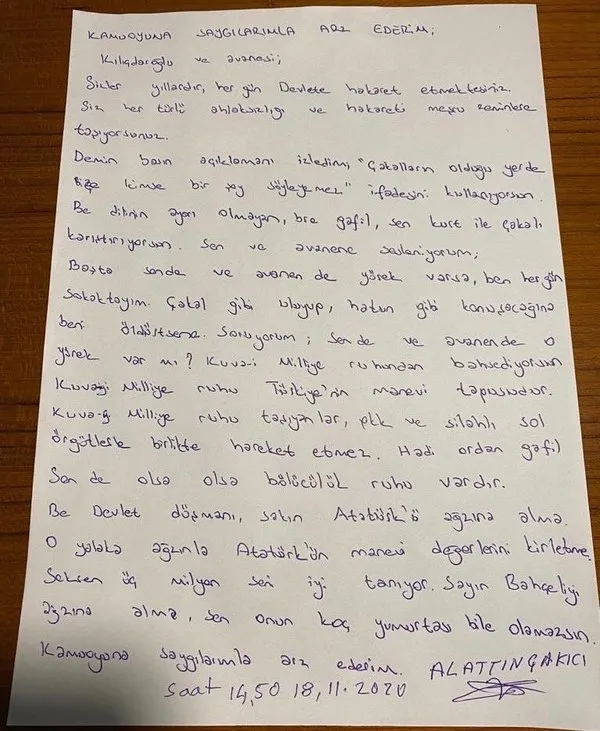 KAMUOYUNA SAYGILARIMLA ARZ EDERİM;
Kılıçdaroğlu ve avanesi;
Sizler yıllardır, her gün Devlete hakaret etmektesiniz.
Siz her türlü ahlaksızlığı ve hakareti meşru zeminlere
taşıyorsunuz.
Demin basın açıklamanı izledim, "Çakalların olduğu yerde
bize kimse bir şey söyleyemez" ifadesini kullanıyorsun.
Be dilinin ayarı olmayan, bre gafil, sen kurt ile çakalı
karıştırıyorsun. Sen ve avanene sesleniyorum;
Başta sende ve avanen de yürek varsa, ben her gün
sokaktayım. Çakal gibi uluyup, hatun gibi konuşacağına
beni öldürtsene. Soruyorum; sende ve avanende o
yürek var mı? Kuva-i Milliye ruhundan bahsediyorsun
Kuvayi Milliye ruhu Türkiye'nin manevi tapusudur.
Kuva-yi Milliye ruhu taşıyanlar, pkk ve silahlı sol
örgütlerle birlikte hareket etmez. Hadi ordan gafil
Sen de olsa olsa bölücülük ruhu vardır.
Be Devlet düşmanı, sakın Atatürk'ü ağzına alma.
O yalaka ağzınla Atatürk'ün manevi değerlerini kirletme.
Seksen üç milyon seni iyi tanıyor. Sayın Bahçeliyi
ağzına alma, sen onun koç yumurtası bile olamazsın.
Kamuoyuna saygılarımla arz ederim. ALATTİN ÇAKICI
saat 14,50 18,11.2020